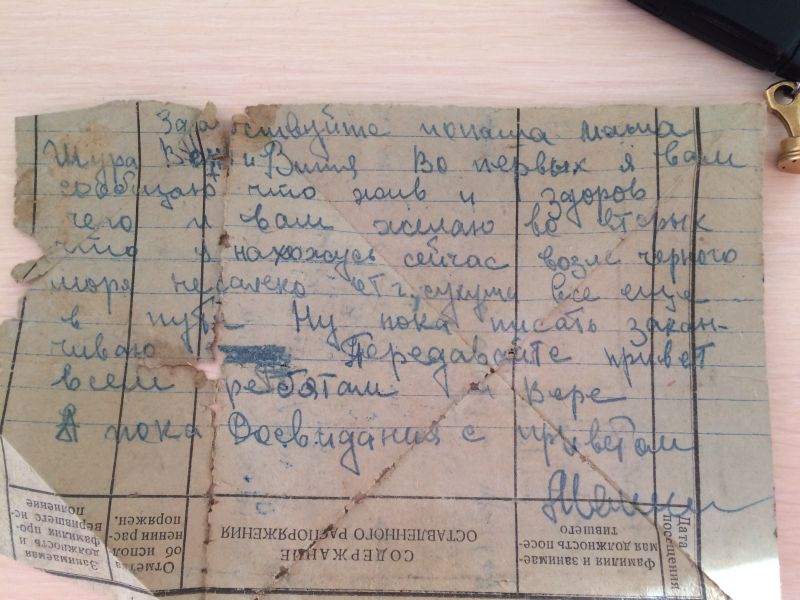 Здравствуйте папаша мама
Шура Вера и Витя Во первых я вам
сообщаю что жив и здоров
чего и вам желаю во вторых
что я нахожусь сейчас возле черного
моря недалеко от г. сухуми все еще
в пути Ну пока писать закан-
чиваю Передавайте привет
всем ребятам и Вере
А пока Досвидания с приветом
Занимаемая
должность и
фамилия про-
верявшего ис-
полнение
Отметка
об испол
нении рас-
поряжен.
СОДЕРЖАНИЕ
ОСТАВЛЕННОГО РАСПОРЯЖЕНИЯ
Фамилия и занимае-
мая должность посе-
тившего
Дата
посещения